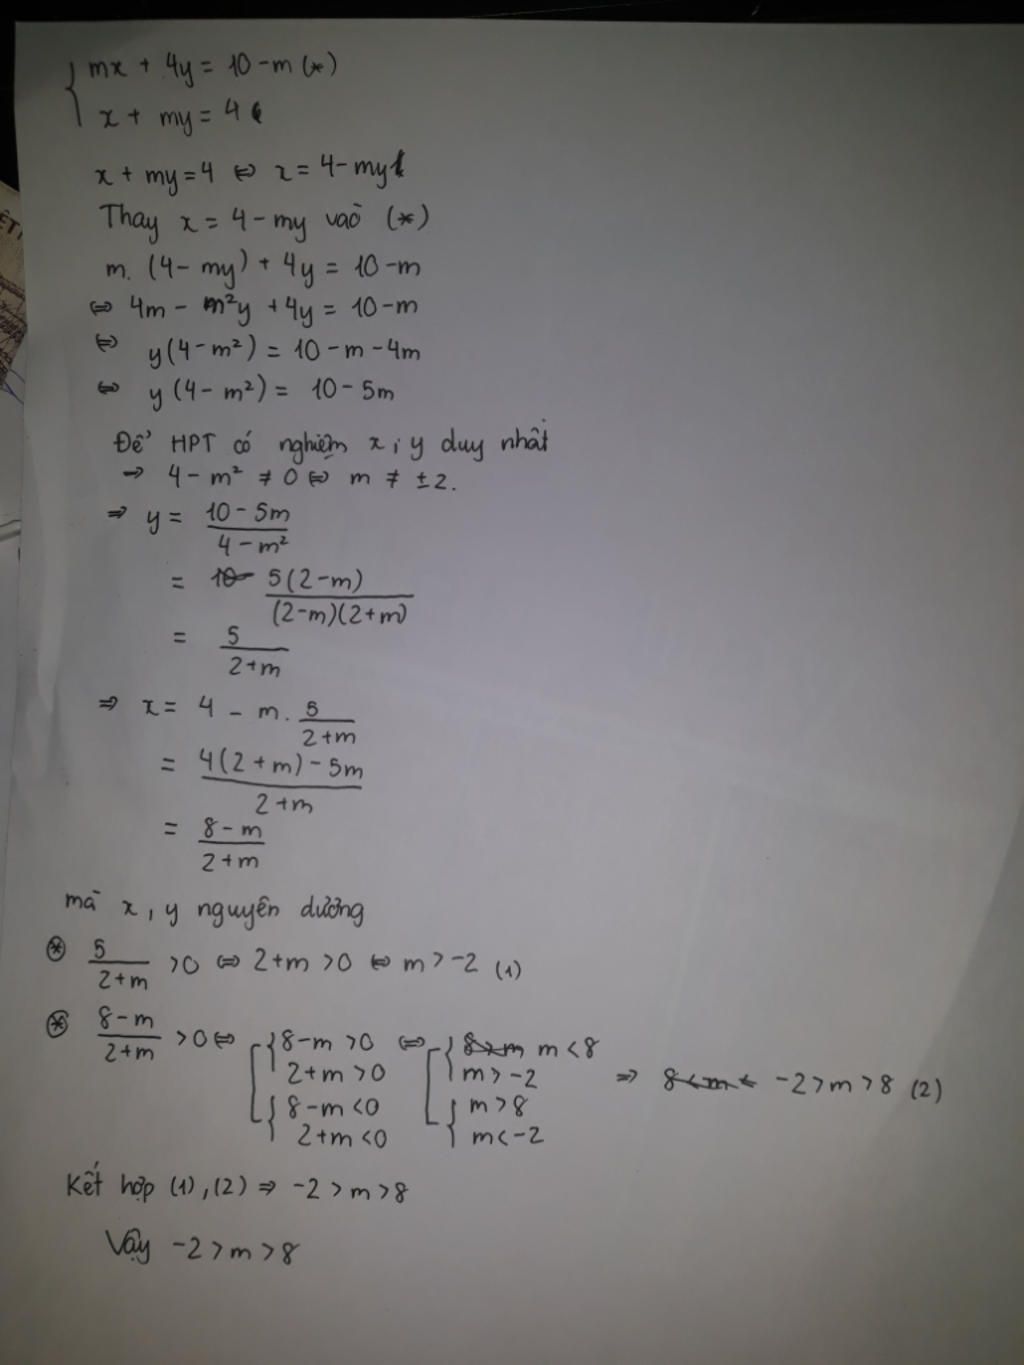 mx + 4y = 10 - m (*)
x + my = 4
x + my = 4 ⇔ x = 4 - my
Thay x = 4 - my vào (*)
m. (4 - my) + 4y = 10 - m
⇔ 4m - m²y + 4y = 10 - m
⇔ y(4 - m²) = 10 - m - 4m
⇔ y(4 - m²) = 10 - 5m
Để HPT có nghiệm x, y duy nhất
→ 4 - m² ≠ 0 ⇔ m ≠ ±2.
⇒ y = (10 - 5m) / (4 - m²)
= 5(2 - m) / (2 - m)(2 + m)
= 5 / (2 + m)
⇒ x = 4 - m. 5 / (2 + m)
= (4(2 + m) - 5m) / (2 + m)
= (8 - m) / (2 + m)
mà x, y nguyên dương
⊛ 5 / (2 + m) > 0 ⇔ 2 + m > 0 ⇔ m > -2 (1)
⊛ (8 - m) / (2 + m) > 0 ⇔ [ { 8 - m > 0 ⇔ [ { m < 8
2 + m > 0 m > -2 ⇒ -2 > m > 8 (2)
{ 8 - m < 0 { m > 8
2 + m < 0 m < -2
Kết hợp (1), (2) ⇒ -2 > m > 8
Vậy -2 > m > 8